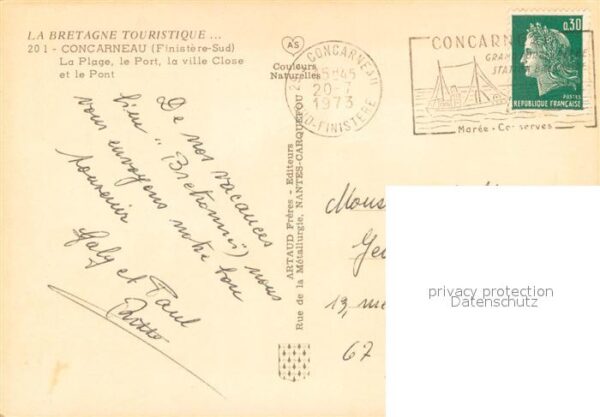 LA BRETAGNE TOURISTIQUE ...
201 - CONCARNEAU (Finistère-Sud)
La Plage, le Port, la ville Close
et le Pont
AS
Couleurs
Naturelles
CONCARNEAU
15-45
20-7
1973
FINISTERE
CONCARN
GRAND
STAT
Marée - Conserves
0,30
POSTES
REPUBLIQUE FRANÇAISE
De nos vacances
bien "Bretonnes" nous
vous envoyons notre bon
souvenir
Gaby et Paul
ARTAUD Frères - Editeurs
Rue de la Métallurgie, NANTES-CARQUEFOU
Mons
Ge
13, 
67
privacy protection
Datenschutz